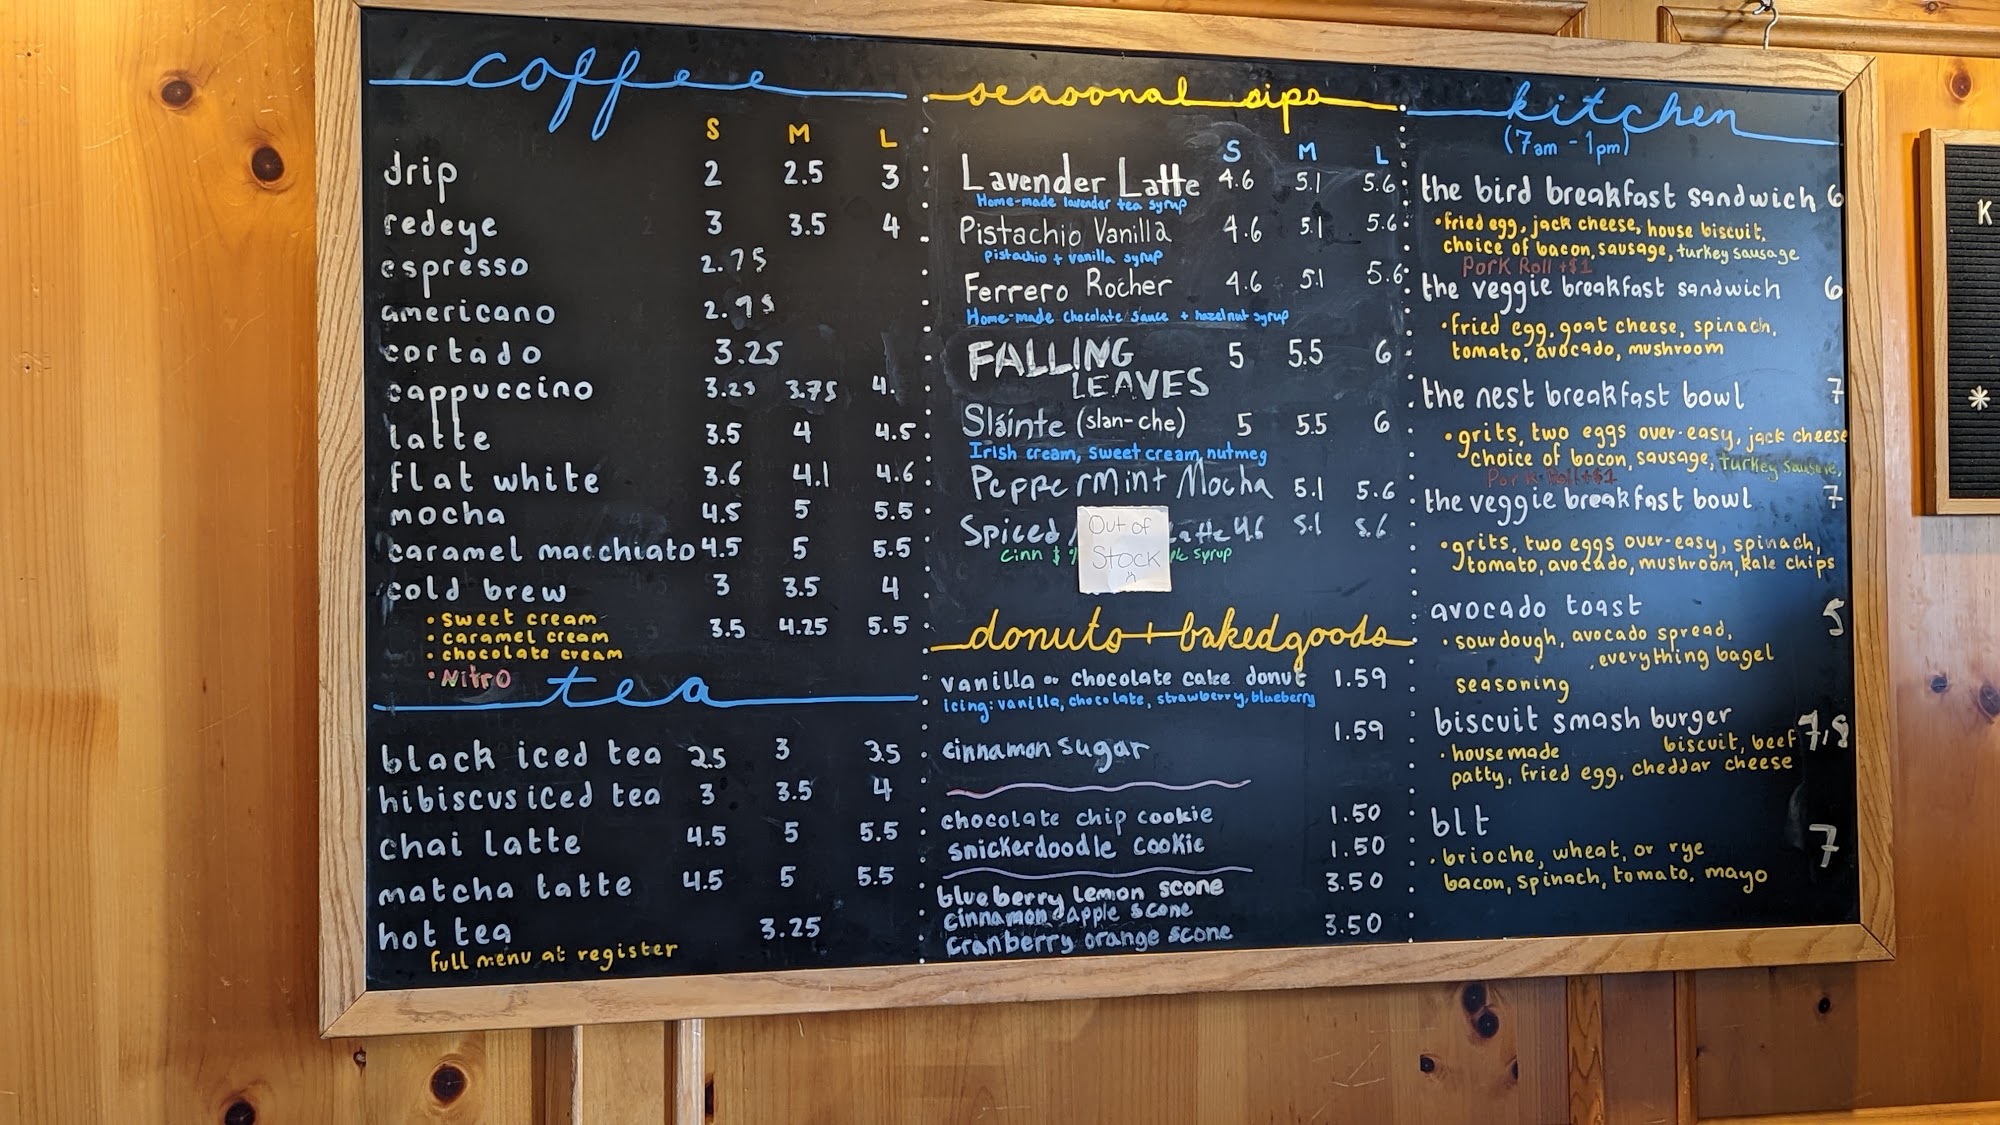 coffee
S M L
drip 2 2.5 3
redeye 3 3.5 4
espresso 2.75
americano 2.95
cortado 3.25
cappuccino 3.25 3.75 4.
latte 3.5 4 4.5
flat white 3.6 4.1 4.6
mocha 4.5 5 5.5
caramel macchiato 4.5 5 5.5
cold brew 3 3.5 4
• sweet cream
• caramel cream 3.5 4.25 5.5
• chocolate cream
• Nitro
tea
black iced tea 2.5 3 3.5
hibiscus iced tea 3 3.5 4
chai latte 4.5 5 5.5
matcha latte 4.5 5 5.5
hot tea 3.25
full menu at register
seasonal sips
S M L
Lavender Latte 4.6 5.1 5.6
Home-made lavender tea syrup
Pistachio Vanilla 4.6 5.1 5.6
pistachio + vanilla syrup
Ferrero Rocher 4.6 5.1 5.6
Home-made chocolate sauce + hazelnut syrup
FALLING 5 5.5 6
LEAVES
Sláinte (slan-che) 5 5.5 6
Irish cream, sweet cream, nutmeg
Peppermint Mocha 5.1 5.6
Spiced 4.6 5.1 5.6
Cinn syrup
Out of
Stock
donuts + baked goods
vanilla or chocolate cake donut 1.59
icing: vanilla, chocolate, strawberry, blueberry
cinnamon sugar 1.59
chocolate chip cookie 1.50
snickerdoodle cookie 1.50
blueberry lemon scone 3.50
cinnamon apple scone
cranberry orange scone 3.50
kitchen
(7am - 1pm)
the bird breakfast sandwich 6
• fried egg, jack cheese, house biscuit,
choice of bacon, sausage, turkey sausage
Pork Roll +$1
the veggie breakfast sandwich 6
• fried egg, goat cheese, spinach,
tomato, avocado, mushroom
the nest breakfast bowl 7
• grits, two eggs over-easy, jack cheese
choice of bacon, sausage, turkey sausage,
Pork Roll +$1
the veggie breakfast bowl 7
• grits, two eggs over-easy, spinach,
tomato, avocado, mushroom, kale chips
avocado toast 5
• sourdough, avocado spread,
, everything bagel
seasoning
biscuit smash burger 7.8
• housemade biscuit, beef
patty, fried egg, cheddar cheese
blt 7
• brioche, wheat, or rye
bacon, spinach, tomato, mayo
K
*